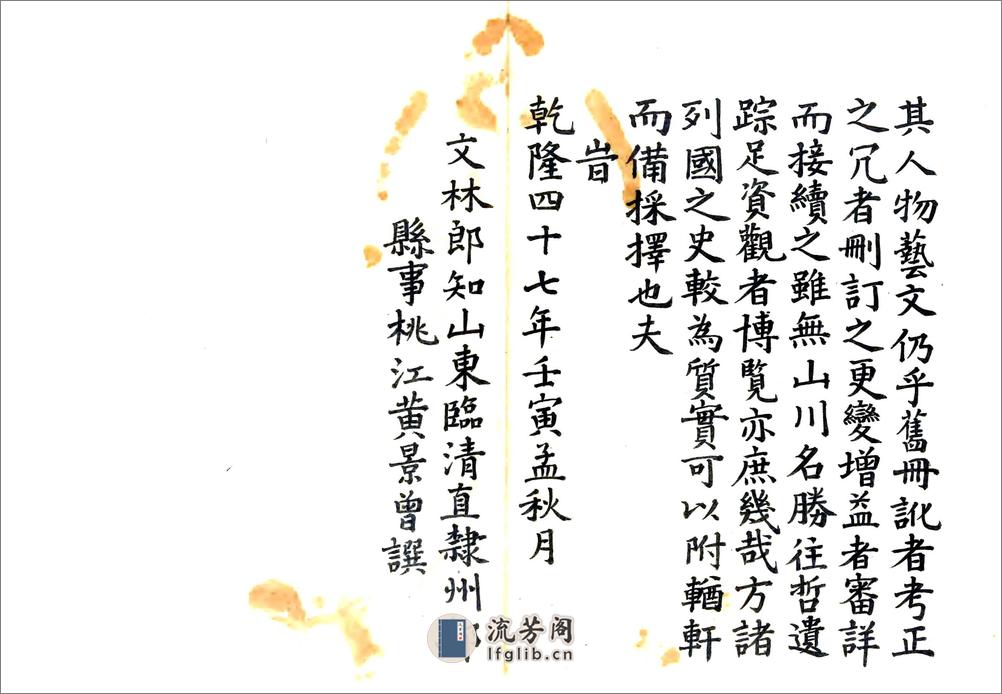 其人物藝文仍乎舊冊訛者考正
之冗者刪訂之更變增益者審詳
而接續之雖無山川名勝往哲遺
踪足資觀者博覽亦庶幾哉方諸
列國之史較為質實可以附輶軒
而備採擇也夫
旹
乾隆四十七年壬寅孟秋月
文林郎知山東臨清直隸州
縣事桃江黄景曾譔
流芳阁
lfglib.cn